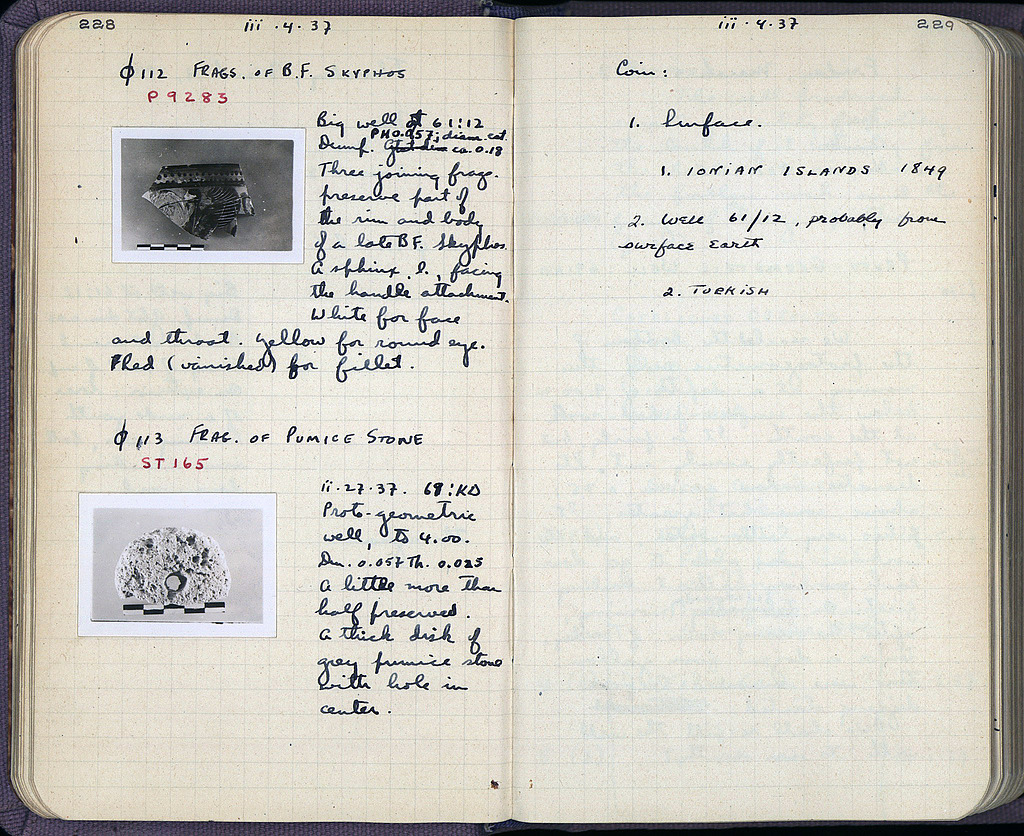 228
iii · 4 · 37
ϕ 112 FRAGS. OF B.F. SKYPHOS
P 9283
Big well at 61:12
PH 0.057; diam. est.
Dump. ca. 0.18
Three joining frags.
preserve part of
the rim and body
of a late B.F. Skyphos.
A sphinx, l., facing
the handle attachment.
White for face
and throat. Yellow for round eye.
Red (vanished) for fillet.
ϕ 113 FRAG. OF PUMICE STONE
ST 165
ii · 27 · 37. 68:ΚΔ
Proto-geometric
well, to 4.00.
Dm. 0.057 Th. 0.025
A little more than
half preserved.
A thick disk of
grey pumice stone
with hole in
center.
iii · 4 · 37
229
Coin:
1. Surface.
1. IONIAN ISLANDS 1849
2. Well 61/12, probably from
surface earth
2. TURKISH